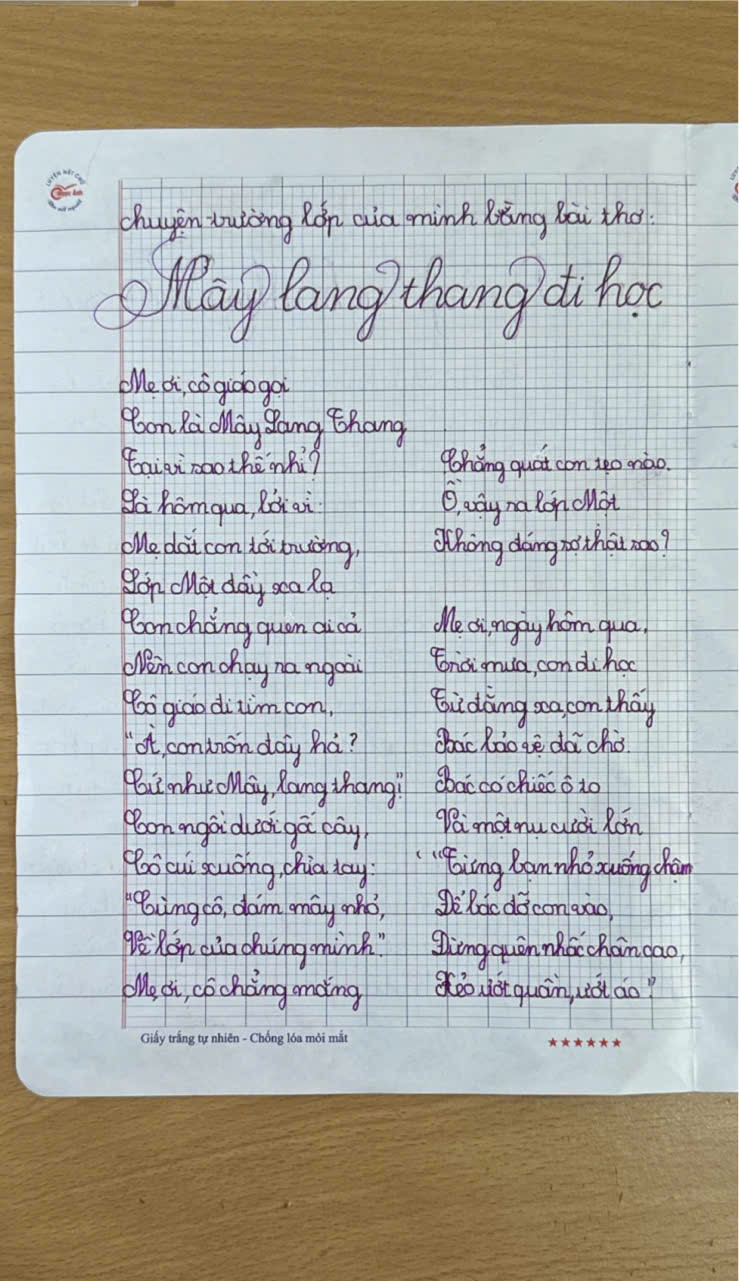 chuyện trường lớp của mình bằng bài thơ:
Mây lang thang đi học
Mẹ ơi, cô giáo gọi
Con là Mây Lang Thang
Tại vì sao thế nhỉ?
Là hôm qua, bởi vì:
Mẹ dắt con tới trường,
Lớp Một đầy xa lạ
Con chẳng quen ai cả
Nên con chạy ra ngoài
Cô giáo đi tìm con,
"Ơ, con trốn đây hả?
Cứ như Mây, lang thang!"
Con ngồi dưới gốc cây,
Cô cúi xuống, chìa tay:
"Cùng cô, đám mây nhỏ,
Về lớp của chúng mình".
Mẹ ơi, cô chẳng mắng
Chẳng quát con tẹo nào.
Ồ, vậy ra lớp Một
Không đáng sợ thật sao?
Mẹ ơi, ngày hôm qua,
Trời mưa, con đi học
Từ đằng xa, con thấy
Bác bảo vệ đã chờ.
Bác có chiếc ô to
Và một nụ cười lớn
"Từng bạn nhỏ xuống chậm
Để bác đỡ con vào,
Đừng quên nhấc chân cao,
Kẻo ướt quần, ướt áo"
Giấy trắng tự nhiên - Chống lóa mỏi mắt